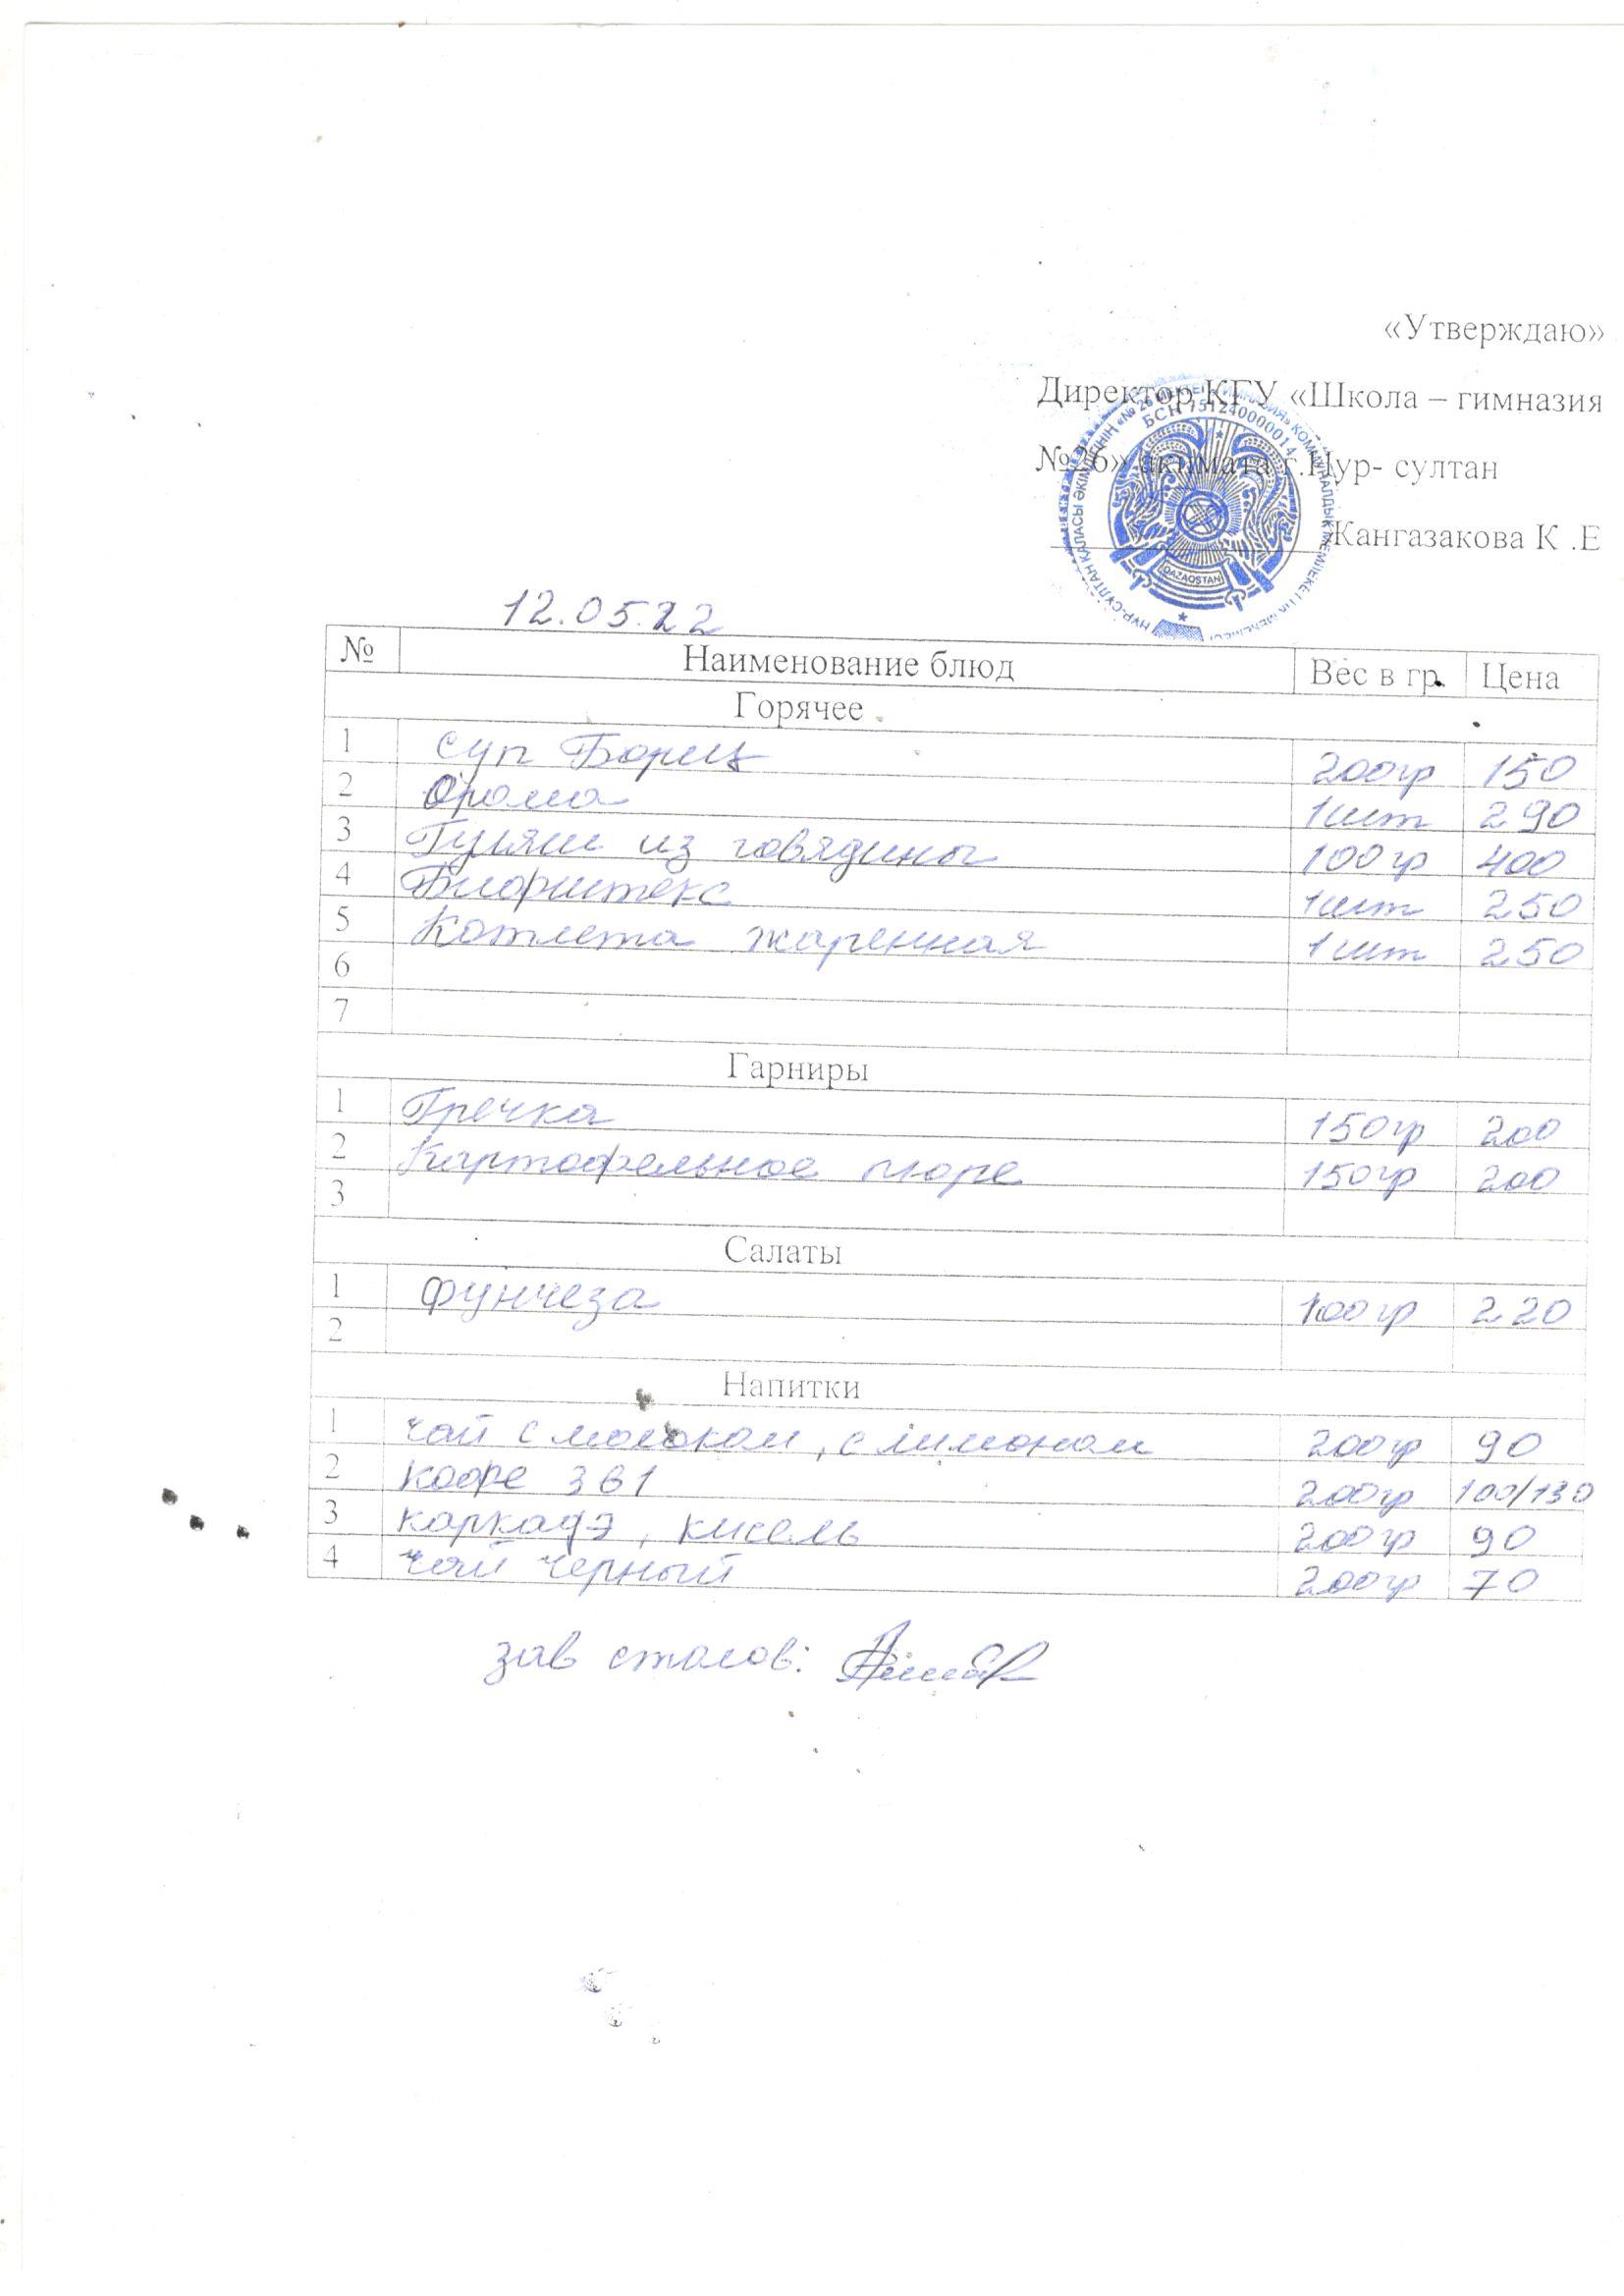 «Утверждаю»
Директор КГУ «Школа – гимназия
№26» акимата г.Нур- султан
Жангазакова К .Е
БСН 151240000014
QAZAQSTAN
12.05.22
№ Наименование блюд Вес в гр. Цена
Горячее
1 Суп Борщ 200гр 150
2 Орома 1шт 290
3 Гуляш из говядины 100гр 400
4 Бифштекс 1шт 250
5 Котлета жаренная 1шт 250
6
7
Гарниры
1 Гречка 150гр 200
2 Картофельное пюре 150гр 200
3
Салаты
1 Фунчеза 100гр 220
2
Напитки
1 чай с молоком, с лимоном 200гр 90
2 кофе 3в1 200гр 100/130
3 каркадэ, кисель 200гр 90
4 чай черный 200гр 70
зав столов: